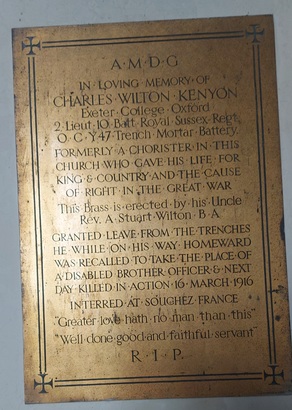 A·M·D·G
IN LOVING MEMORY·OF
CHARLES·WILTON·KENYON
Exeter·College·Oxford
2·Lieut·10·Batt·Royal·Sussex·Regt
O·C·Y47·Trench·Mortar·Battery.
FORMERLY·A·CHORISTER·IN·THIS
CHURCH·WHO·GAVE·HIS·LIFE·FOR
KING·&·COUNTRY·AND·THE·CAUSE
OF·RIGHT·IN·THE·GREAT·WAR
This·Brass·is·erected·by·his·Uncle
Rev. A·Stuart·Wilton·B·A
GRANTED·LEAVE·FROM·THE·TRENCHES
HE·WHILE·ON·HIS·WAY·HOMEWARD
WAS·RECALLED·TO·TAKE·THE·PLACE·OF
A·DISABLED·BROTHER·OFFICER·&·NEXT
DAY·KILLED·IN·ACTION·16·MARCH·1916
INTERRED·AT·SOUCHEZ·FRANCE
"Greater·love·hath·no·man·than·this"
"Well·done·good·and·faithful·servant"
R·I·P.